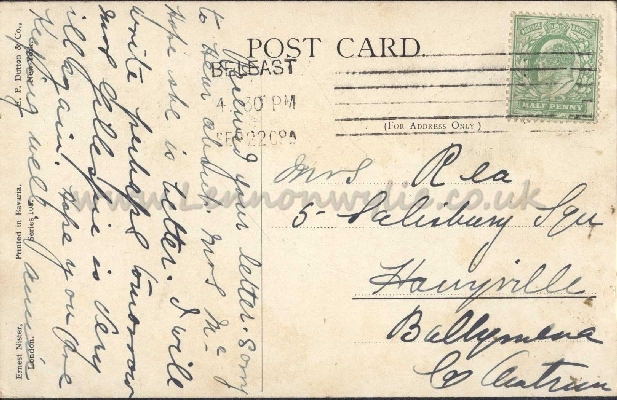 POST CARD.
BELFAST
4.30 PM
SEP 22 08
HALF PENNY
(FOR ADDRESS ONLY)
Mrs Rea
5 Salisbury Squ
Harryville
Ballymena
Co Antrim
Received your letter. Sorry
to hear about Mrs Mc-
Hope she is better. I will
write perhaps tomorrow
Mrs Gillespie is very
ill again. Hope you are
Keeping well. Annie
E. P. Dutton & Co.,
New York.
Printed in Bavaria.
Series 107.
Ernest Nister,
London.
www.Lennonwylie.co.uk